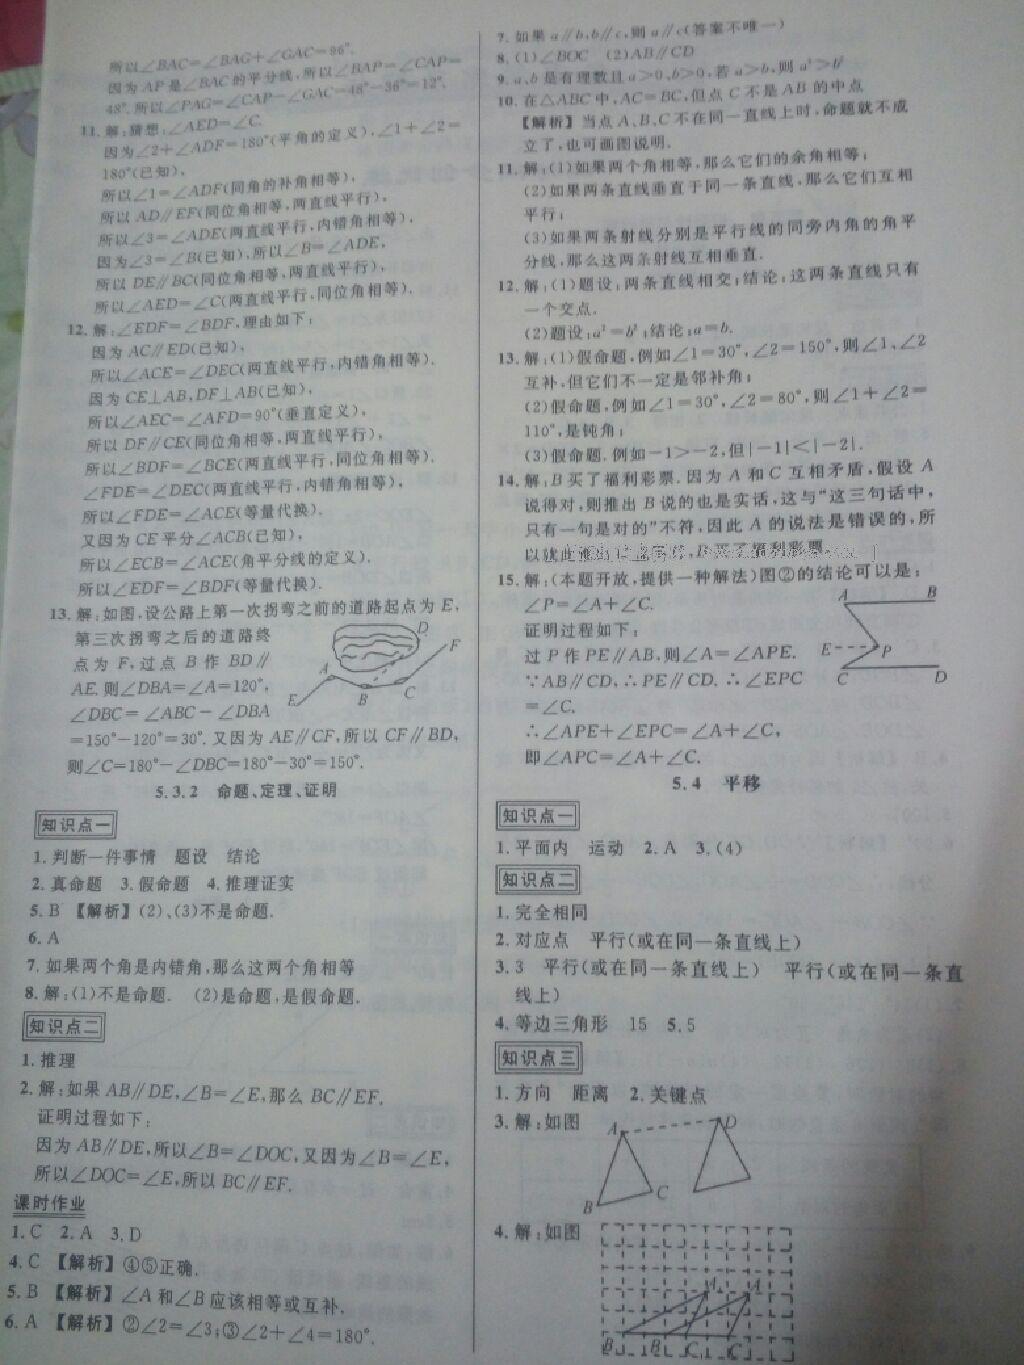 所以∠BAC=∠BAG+∠GAC=96°.
因为AP是∠BAC的平分线,所以∠BAP=∠CAP=
48°.所以∠PAG=∠CAP-∠GAC=48°-36°=12°.
11.解:猜想:∠AED=∠C.
因为∠2+∠ADF=180°(平角的定义),∠1+∠2=
180°(已知),
所以∠1=∠ADF(同角的补角相等),
所以AD∥EF(同位角相等,两直线平行),
所以∠3=∠ADE(两直线平行,内错角相等),
因为∠3=∠B(已知),所以∠B=∠ADE,
所以DE∥BC(同位角相等,两直线平行),
所以∠AED=∠C(两直线平行,同位角相等).
12.解:∠EDF=∠BDF,理由如下:
因为AC∥ED(已知),
所以∠ACE=∠DEC(两直线平行,内错角相等).
因为CE⊥AB,DF⊥AB(已知),
所以∠AEC=∠AFD=90°(垂直定义),
所以DF∥CE(同位角相等,两直线平行),
所以∠BDF=∠BCE(两直线平行,同位角相等).
∠FDE=∠DEC(两直线平行,内错角相等),
所以∠FDE=∠ACE(等量代换).
又因为CE平分∠ACB(已知),
所以∠ECB=∠ACE(角平分线的定义).
所以∠EDF=∠BDF(等量代换).
13.解:如图,设公路上第一次拐弯之前的道路起点为E,
第三次拐弯之后的道路终
点为F,过点B作BD∥
AE.则∠DBA=∠A=120°,
∠DBC=∠ABC-∠DBA
=150°-120°=30°.又因为AE∥CF,所以CF∥BD,
则∠C=180°-∠DBC=180°-30°=150°.
D
F
A
E
B
C
5.3.2 命题、定理、证明
知识点一
1.判断一件事情 题设 结论
2.真命题 3.假命题 4.推理证实
5.B 【解析】(2)、(3)不是命题.
6.A
7.如果两个角是内错角,那么这两个角相等
8.解:(1)不是命题. (2)是命题,是假命题.
知识点二
1.推理
2.解:如果AB∥DE,∠B=∠E,那么BC∥EF.
证明过程如下:
因为AB∥DE,所以∠B=∠DOC,又因为∠B=∠E,
所以∠DOC=∠E,所以BC∥EF.
课时作业
1.C 2.A 3.D
4.C 【解析】④⑤正确.
5.B 【解析】∠A和∠B应该相等或互补.
6.A 【解析】②∠2=∠3;③∠2+∠4=180°.
7.如果a∥b,b∥c,则a∥c(答案不唯一)
8.(1)∠BOC (2)AB∥CD
9.a、b是有理数且a>0,b>0,若a>b,则a²>b²
10.在△ABC中,AC=BC,但点C不是AB的中点
【解析】当点A、B、C不在同一直线上时,命题就不成
立了,也可画图说明.
11.解:(1)如果两个角相等,那么它们的余角相等;
(2)如果两条直线垂直于同一条直线,那么它们互相
平行;
(3)如果两条射线分别是平行线的同旁内角的角平
分线,那么这两条射线互相垂直.
12.解:(1)题设:两条直线相交;结论:这两条直线只有
一个交点.
(2)题设:a²=b²;结论:a=b.
13.解:(1)假命题,例如∠1=30°,∠2=150°,则∠1、∠2
互补,但它们不一定是邻补角;
(2)假命题,例如∠1=30°,∠2=80°,则∠1+∠2=
110°,是钝角;
(3)假命题.例如-1>-2,但|-1|<|-2|.
14.解:B买了福利彩票.因为A和C互相矛盾,假设A
说得对,则推出B说的也是实话,这与“这三句话中,
只有一句是对的”不符,因此A的说法是错误的,所
以就此推出 B买了福利彩票
15.解:(本题开放,提供一种解法)图②的结论可以是:
∠P=∠A+∠C.
证明过程如下:
过P作PE∥AB,则∠A=∠APE.
∵AB∥CD,∴PE∥CD.∴∠EPC
=∠C.
∴∠APE+∠EPC=∠A+∠C,
即∠APC=∠A+∠C.
A
B
E
P
C
D
5.4 平移
知识点一
1.平面内 运动 2.A 3.(4)
知识点二
1.完全相同
2.对应点 平行(或在同一条直线上)
3.3 平行(或在同一条直线上) 平行(或在同一条直
线上)
4.等边三角形 15 5.5
知识点三
1.方向 距离 2.关键点
3.解:如图
A
D
B
C
4.解:如图
A
A'
B
B'
C
C'